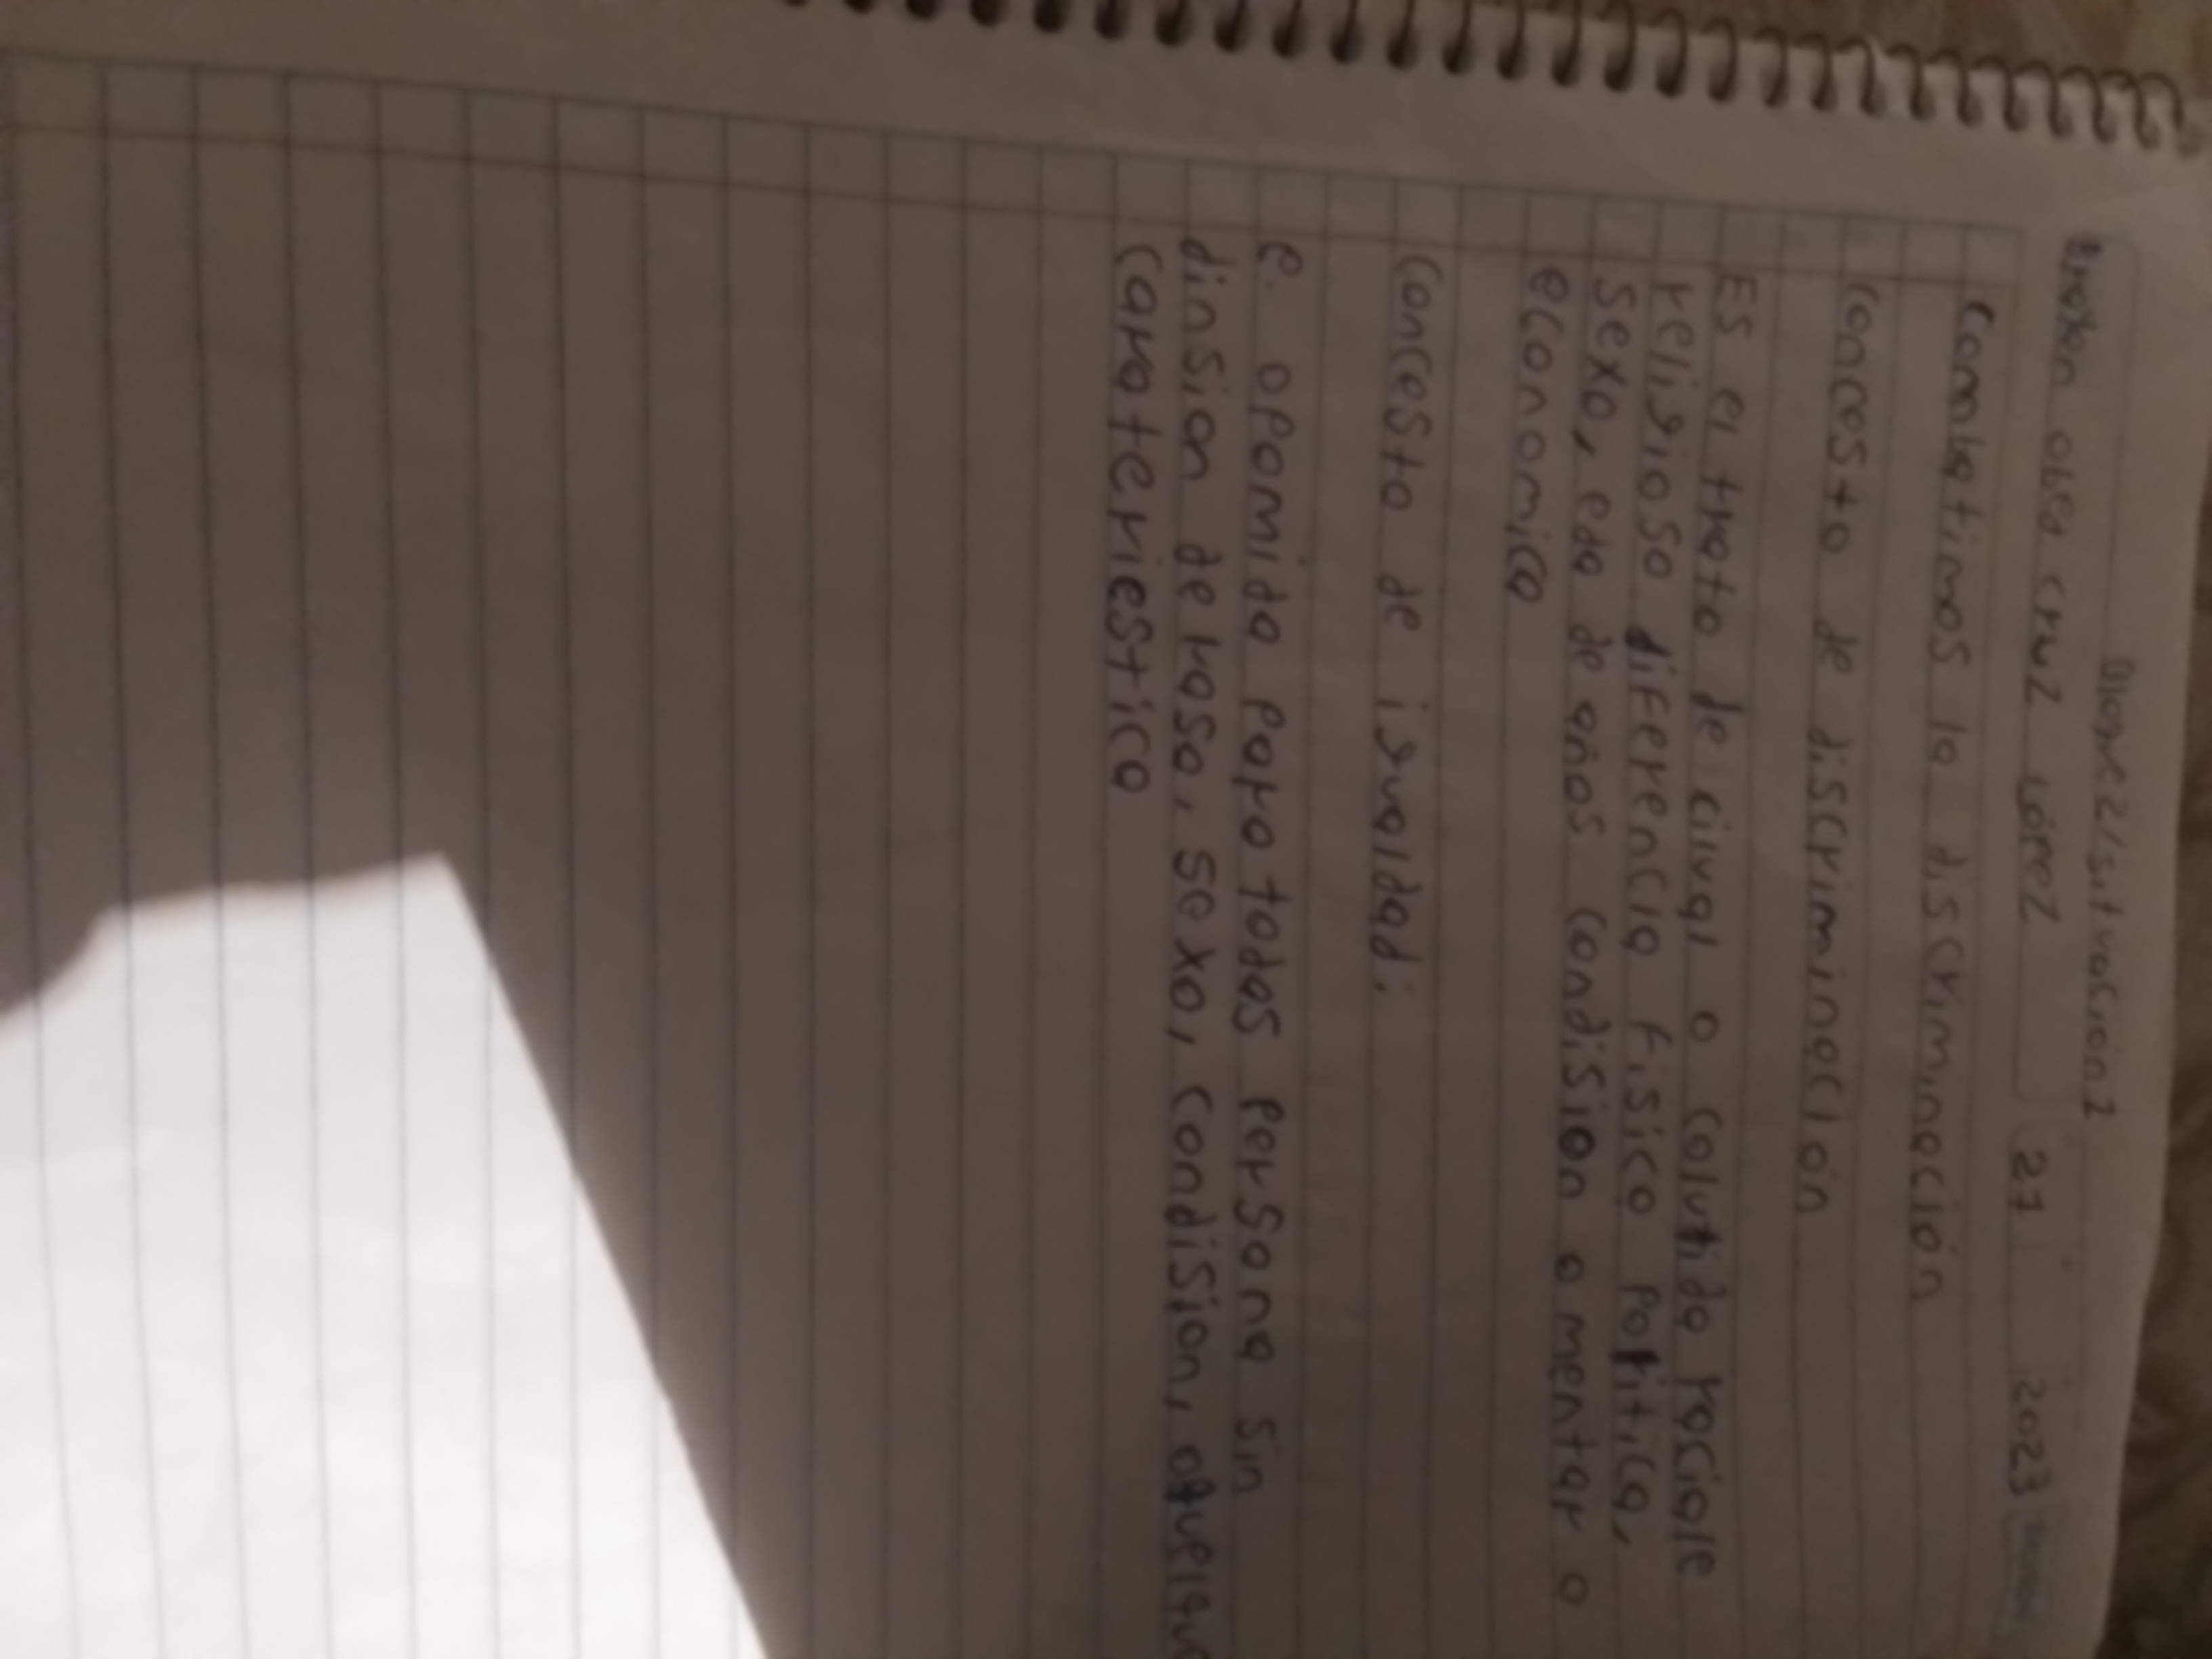 Bloque 2/situacion 2
obed cruz López 27 2023
Combatimos la discriminación
Concesto de discriminación
Es el trato de civgl o colutida raciale
religioso diferencia fisico poritica,
sexo, eda de años condision o mentar o
economica
Concesto de igualdad:
e. opomida para todas persona sin
dinsion de rasa, sexo, condision,
carateriestica